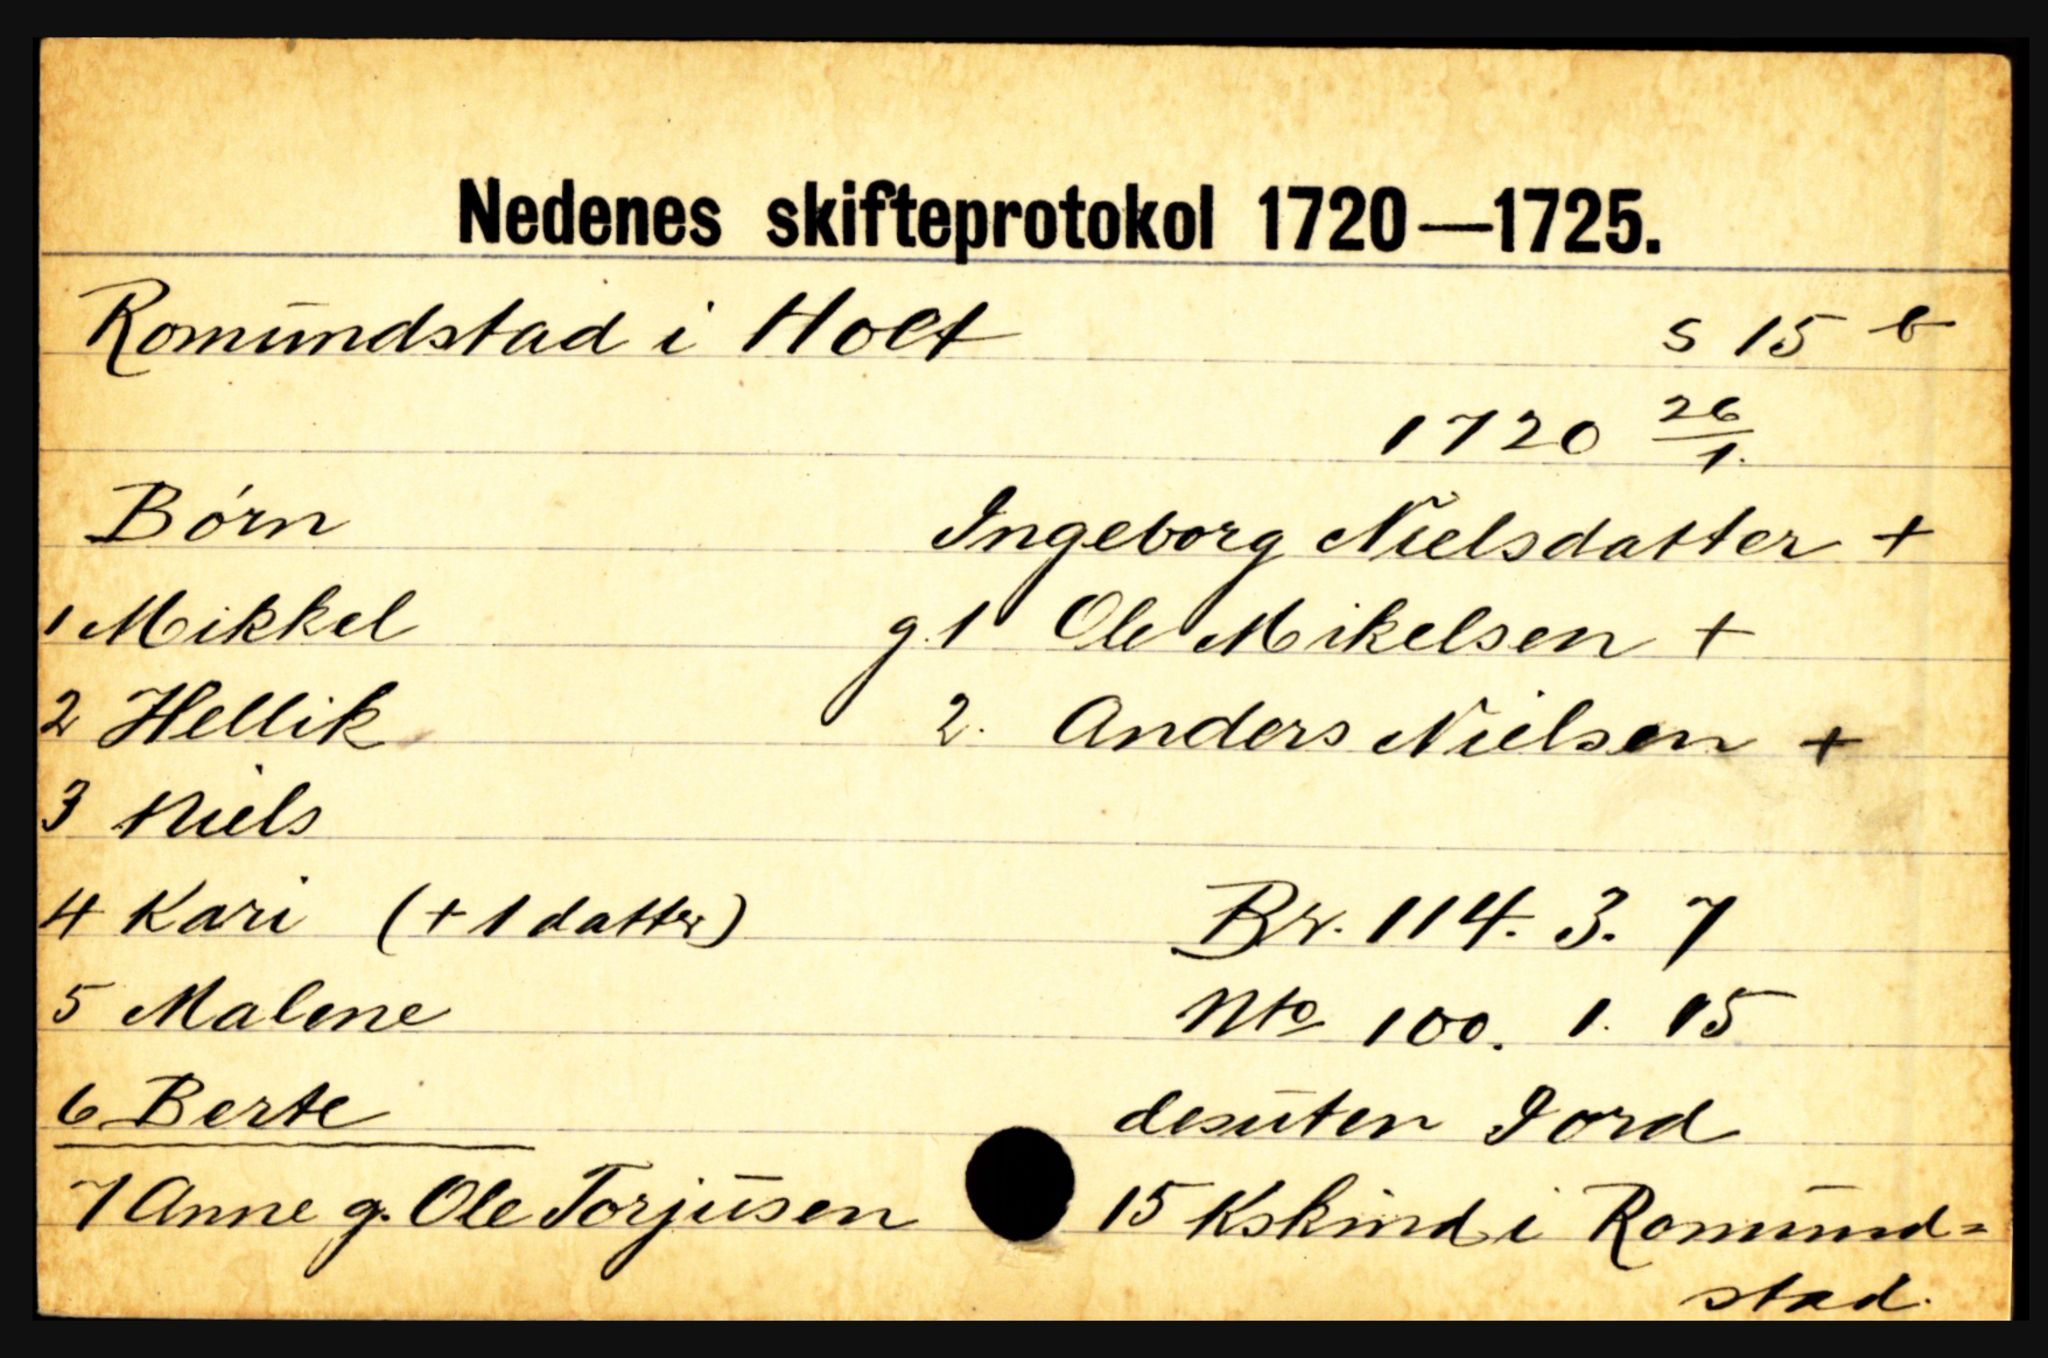 Nedenes skifteprotokol 1720—1725.
Romundstad i Holt s 15 b
1720 26/1.
Børn Ingeborg Nielsdatter +
1 Mikkel g. 1 Ole Mikelsen +
2 Hellik 2. Anders Nielsen +
3 Niels
4 Kari (+ 1 datter) Br. 114. 3. 7
5 Malene Nto 100. 1. 15
6 Berte desuten Jord
7 Anne g. Ole Torjusen 15 Kskind i Romund=
stad.